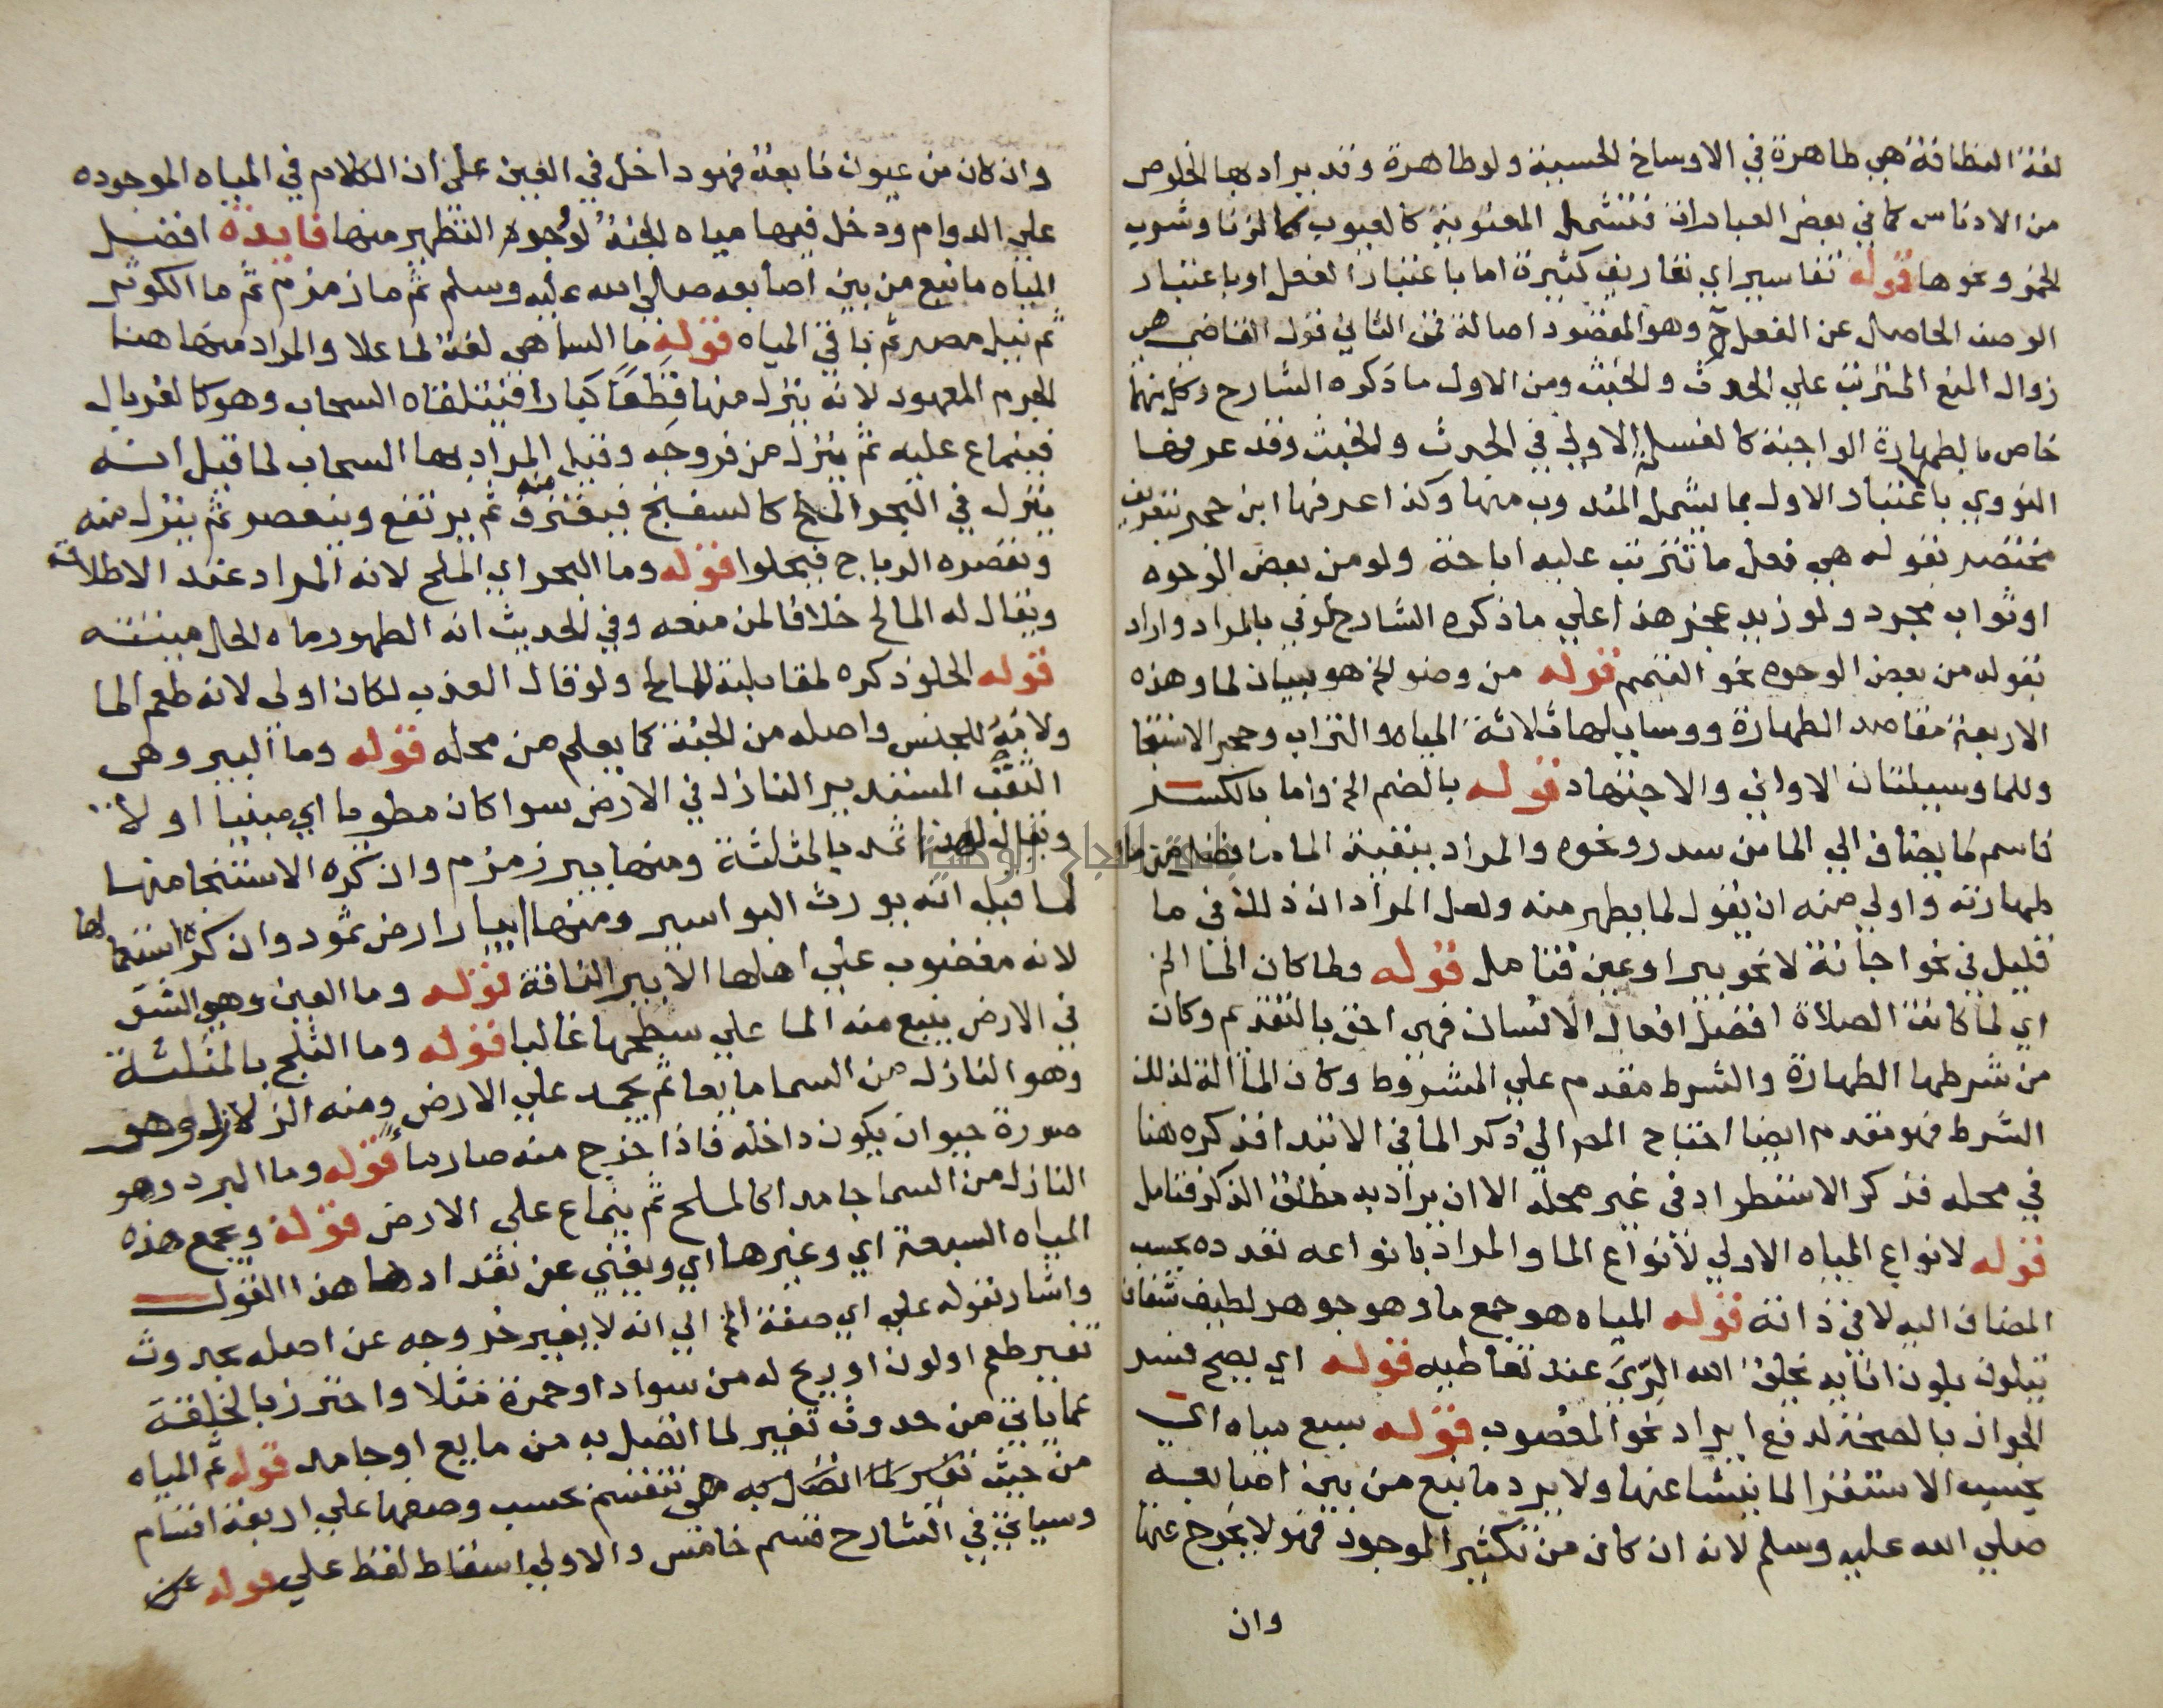 لغة النظافة هي طاهرة في الاوساخ الحسية ولو طاهرة وقد يراد بها الخلوص
من الادناس كما في بعض العبارات فتشمل المعنوية كالعيوب كالزنا وشرب
الخمر ونحوها قوله تفاسير اي تعاريف كثيرة اما باعتبار الفعل او باعتبار
الوصف الحاصل عن الفعل وهو المقصود اصالة فمن الثاني قول القاضي هي
زوال المنع المترتب علي الحدث والخبث ومن الاول ما ذكره الشارح وكل منهما
خاص بالطهارة الواجبة كالغسلة الاولي في الحدث والخبث وقد عرفها
النووي باعتبار الاول بما يشمل المندوب منها وكذا عرفها ابن حجر بتعريف
مختصر بقوله هي فعل ما تترتب عليه اباحة ولو من بعض الوجوه
او ثواب مجرد ولو زيد عجز هذا علي ما ذكره الشارح لوفي بالمراد واراد
بقوله من بعض الوجوه نحو التيمم قوله من وضو الخ هو بيان لما وهذه
الاربعة مقاصد الطهارة ووسايلها ثلاثة المياه والتراب وحجر الاستنجا
وللما وسيلتان الاواني والاجتهاد قوله بالضم الخ واما بالكسر
فاسم لما يضاف الي الما من سدر ونحوه والمراد ببقية الما ما فضل من ما
طهارته واولي منه ان يقول لما يطهر منه ولعل المراد ان ذلك في ما
قليل في نحو اجانة لا نحو بير او عين فتامل قوله ولما كان الما الخ
اي لما كانت الصلاة افضل افعال الانسان فهي احق بالتقديم وكان
من شرطها الطهارة والشرط مقدم علي المشروط وكان الما الة لذلك
الشرط فهو مقدم ايضا احتاج المص الي ذكر الما في الابتدا فذكره هنا
في محله فذكر الاستطراد في غير محله الا ان يراد به مطلق الذكر فتامل
قوله لانواع المياه الاولي لانواع الما والمراد بانواعه تعدده بحسب
المضاف اليه لا في ذاته قوله المياه هو جمع ما وهو جوهر لطيف شفاف
يتلون بلون انايه يخلق الله الري عند تعاطيه قوله اي يصح فسر
الجواز بالصحة لدفع ايراد نحو المغصوب قوله سبع مياه اي
بحسب الاستقرا لما ينشا عنها ولا يرد ما نبع من بين اصابعه
صلي الله عليه وسلم لانه ان كان من تكثير الموجود فهو لا يخرج عنها
وان
وان كان من عيون نابعة فهو داخل في العين علي ان الكلام في المياه الموجوده
علي الدوام ودخل فيها مياه الجنة لوجوه التطهير منها فايدة افضل
المياه ما نبع من بين اصابعه صلي الله عليه وسلم ثم ما زمزم ثم ما الكوثر
ثم نيل مصر ثم باقي المياه قوله ما السما هي لغة لما علا والمراد منها هنا
الجرم المعهود لانه ينزل منها قطعا كبارا فيتلقاه السحاب وهو كالغربال
فينماع عليه ثم ينزل من فروجه وقيل المراد بها السحاب لما قيل انه
ينزل في البحر المالح كالسفنج فيغترف منه ثم يرتفع وينعصر ثم ينزل منه
وتقصره الرياح فيحلوا قوله وما البحر اي الملح لانه المراد عند الاطلاق
ويقال له المالح خلافا لمن منعه وفي الحديث انه الطهور ماه الحل ميتته
قوله الحلو ذكره لمقابلة المالح ولو قال العذب لكان اولي لانه طعم الما
ولامه للجنس واصله من الجنة كما يعلم من محله قوله وما البير وهي
الثقب المستدير النازل في الارض سوا كان مطويا اي مبنيا او لا
ويقال لهذا ثمد بالمثلثة ومنها بير زمزم وان كره الاستنجا منها
لما قيل انه يورث البواسير ومنها ابيار ارض ثمود وان كره استعمالها
لانه مغضوب علي اهلها الا بير الناقة قوله وما العين وهو الشق
في الارض ينبع منه الما علي سطحها غالبا قوله وما الثلج بالمثلثة
وهو النازل من السما مايعا ثم يجمد علي الارض ومنه الزلال وهو
صورة حيوان يكون داخله فاذا خرج منه صار ما قوله وما البرد وهو
النازل من السما جامدا كالملح ثم ينماع علي الارض قوله ويجمع هذه
المياه السبعة اي وغيرها اي ويغني عن تعدادها هذا القول
واشار بقوله علي اي صفة الخ الي انه لا يضير خروجه عن اصله بحدوث
تغير طعم او لون او ريح له من سواد او حمرة مثلا واحترز بالخلقة
عما ياتي من حدوث تغير لما اتصل به من مايع او جامد قوله ثم المياه
من حيث تغير لما اتصل به هي تنقسم بحسب وصفها علي اربعة اقسام
وسياتي في الشارح قسم خامس والاولي اسقاط لفظ علي قوله عن